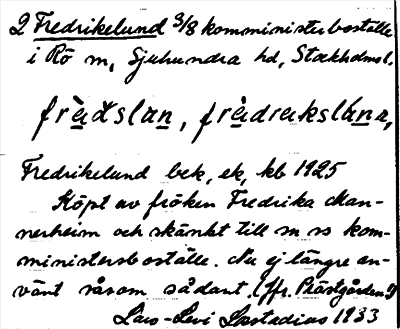 2 Fredrikelund 3/8 komministerboställe
i Rö sn, Sjuhundra hd, Stockholms l.
frὰdslan, frὰdrakslána,
Fredrikelund bek, ek, kb 1925
Köpt av fröken Fredrika Man-
nerheim och skänkt till sn ss kom-
ministersboställe. Nu ej längre an-
vänt såsom sådant. (Jfr. Prästgården 1)
Lars-Levi Læstadius 1933